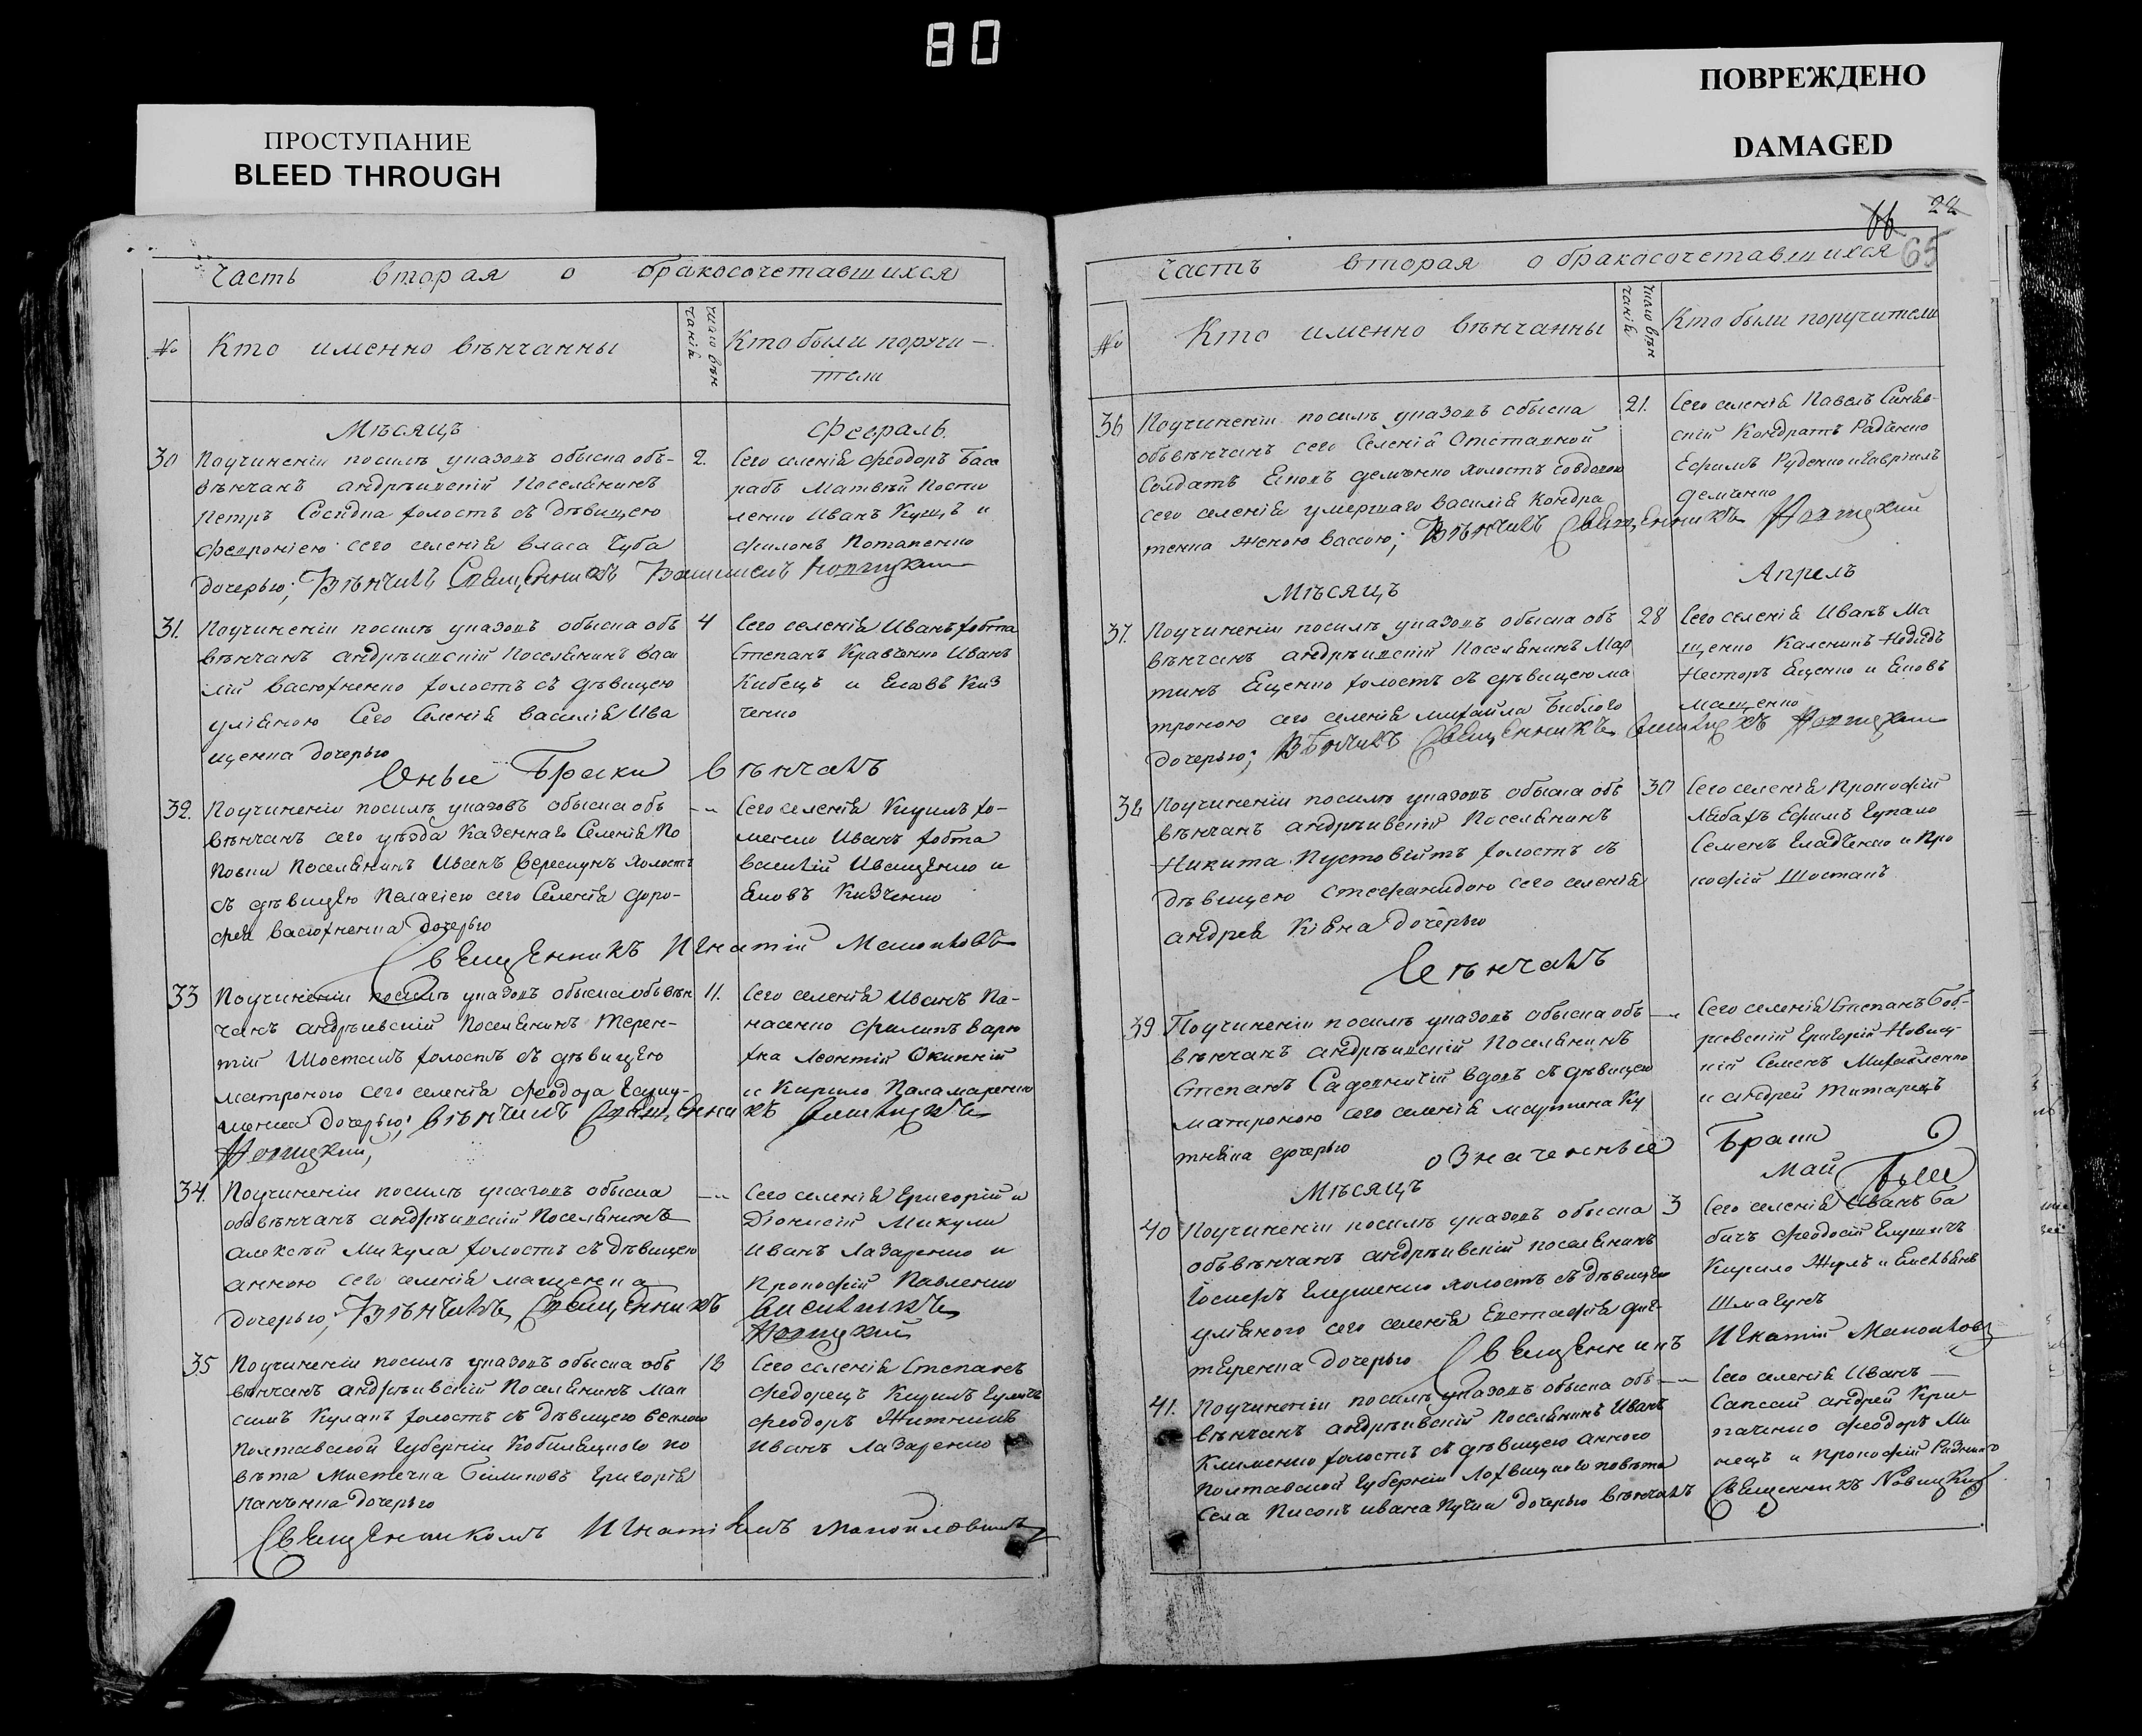 80
ПРОСТУПАНИЕ
BLEED THROUGH
ПОВРЕЖДЕНО
DAMAGED
Часть вторая о бракосочетавшихся
№
Кто именно вѣнчанны
Кто были поручи-
тели
Мѣсяцъ
Февраль.
30
Поучиненіи посимъ указовъ обыска объ-
вѣнчанъ андрѣивскій Поселянинъ
Петръ Сосидка холостъ съ дѣвицею
Февроніею сего селенія Власа Чуба
дочерью; Вѣнчилъ Священникъ
2.
Сего селенія Феодоръ Баса
рабъ Матвѣй Кости
ленко Иванъ Куцъ и
Филонъ Потапенко
31.
Поучиненіи посимъ указовъ обыска объ
вѣнчанъ андрѣивскій Поселянинъ Васи
лій Васюхненко холостъ съ дѣвицею
уліяною Сего Селенія Василія Ива
щенка дочерью
4
Сего селенія Иванъ Ховта
Степанъ Кравченко Иванъ
Кибецъ и Еаковъ Киз
ченко
Оные Браки вѣнчалъ
32.
Поучиненіи посимъ указовъ обыска объ
вѣнчанъ сего уѣзда Казеннаго Селенія По
Поселянинъ Иванъ Вересунъ холостъ
съ дѣвицею Пелагіею сего Селенія Доро-
фея Васюхненка дочерью
Сего селенія Кирилъ Хо-
менко Иванъ Ховта
Василій Иващенко и
Еаковъ Кизченко
Священникъ Игнатій Маноиловъ
33
Поучиненіи посимъ указовъ обыска обьвѣн
чанъ андрѣивскій Поселянинъ Терен-
тій Шостакъ холостъ съ дѣвицею
матроною сего селенія Феодора
менка дочерью; Вѣнчилъ Священникъ
11.
Сего селенія Иванъ Па-
насенко Филипъ Варю
хка Леонтій Окипній
и Кирило Паламаренко
34.
Поучиненіи посимъ указовъ обыска
объвѣнчанъ андрѣивскій Поселянинъ
алексѣй Микула холостъ съ дѣвицею
анною сего селенія мащенка
дочерью; Вѣнчилъ Священникъ
Сего селенія Григорій и
Діонисій Микули
Иванъ Лазаренко и
Прокофій Павленко
35
Поучиненіи посимъ указовъ обыска объ
вѣнчанъ андрѣивскій Поселянинъ Мак
симъ Кулакъ холостъ съ дѣвицею
Полтавской Губерніи Кобиляцкого по
вѣта Мистечка Биликовъ Григорія
дочерью
Сего селенія Степанъ
Федорецъ Кирилъ
Феодоръ Житникъ
Иванъ Лазаренко
Священникомъ Игнатіемъ Маноиловымъ
66
22
65
Часть вторая о бракосочетавшихся
№
Кто именно вѣнчанны
Кто были поручители
36
Поучиненіи посимъ указовъ обыска
объвѣнчанъ сего Селенія Отставной
Солдатъ Еаковъ Демченко холостъ совдовою
сего селенія умершаго Василія Кондра
тенка женою Вассою; Вѣнчилъ Священникъ
21.
Сего селенія Павелъ Синяв-
скій Кондратъ Радченко
Ефимъ Руденко и Гавріилъ
Демченко
Мѣсяцъ
Апрель
37.
Поучиненіи посимъ указовъ обыска объ
вѣнчанъ андрѣивскій Поселянинъ Мар
тинъ Ещенко холостъ съ дѣвицею ма
троною сего селенія михайла Бѣблого
дочерью; Вѣнчилъ Священникъ
28
Сего селенія Иванъ Ма
щенко Каленикъ
Несторъ Ещенко и Еаковъ
Мащенко
38
Поучиненіи посимъ указовъ обыска объ
вѣнчанъ андрѣивскій Поселянинъ
Никита Пустовійтъ холостъ съ
дѣвицею Стефанидою сего селенія
андрея Кіяна дочерью
30
Сего селенія Прокофій
Лябахъ Ефимъ Гупало
Семенъ Гладченко и Про
кофій Шостакъ
вѣнчалъ
39.
Поучиненіи посимъ указовъ обыска объ
вѣнчанъ андрѣивскій Поселянинъ
Степанъ Садовничій вдовъ съ дѣвицею
матроною сего селенія мартина Ку
тняка дочерью
Сего селенія Степанъ Боб-
ровскій Григорій Новиц-
кій Семенъ Михайленко
и андрей Титарецъ
означенные Браки
Мѣсяцъ
Май
40
Поучиненіи посимъ указовъ обыска
объвѣнчанъ андрѣивскій поселянинъ
Іосифъ Глушенко холостъ съ дѣвицею
уліяною сего селенія Евстафія Дях-
тяренка дочерью
3
Сего селенія Иванъ Ба
бичъ Феодосій
Кирило Жукъ и Емельянъ
Шмагунъ
Священникъ Игнатій Маноиловъ
41.
Поучиненіи посимъ указовъ обыска объ
вѣнчанъ андрѣивскій Поселянинъ Иванъ
Клименко холостъ съ дѣвицею анною
Полтавской Губерніи Лохвицкого повѣта
Села Писокъ ивана Пучка дочерью вѣнчалъ
Сего селенія Иванъ
Сапсай андрей Кри
паченко Феодоръ
и Прокофій
Священникъ Новицкій